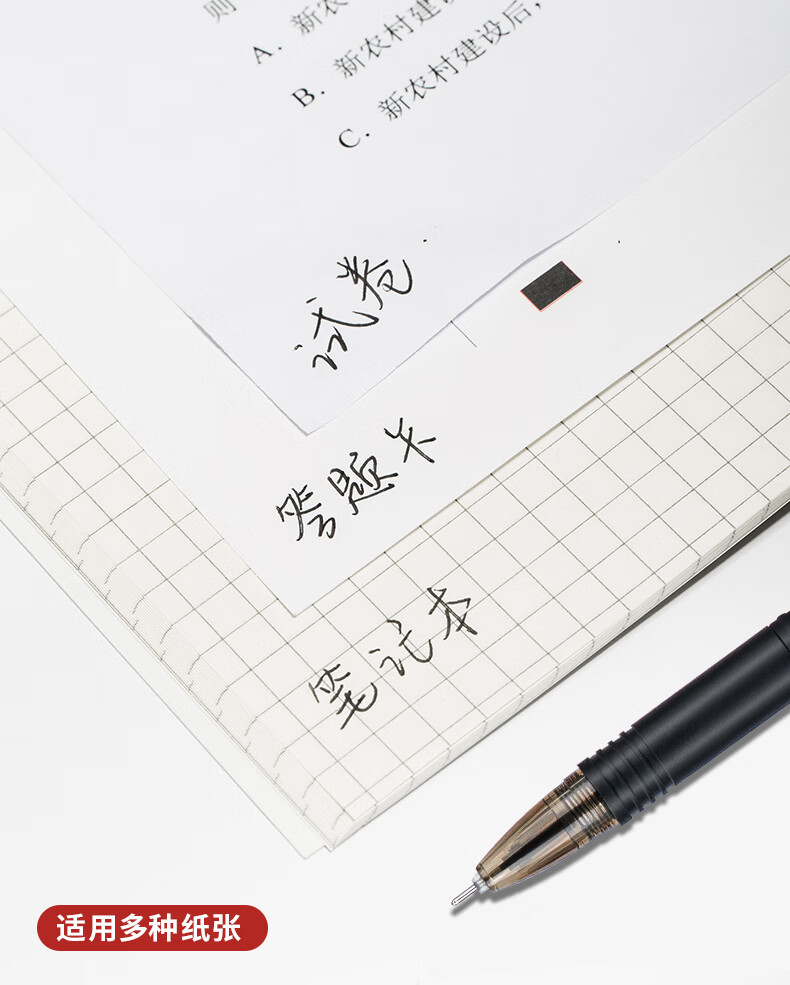 则
A. 新农
B. 新农村建设
C. 新农村建设后,
试卷
答题卡
笔记本
适用多种纸张